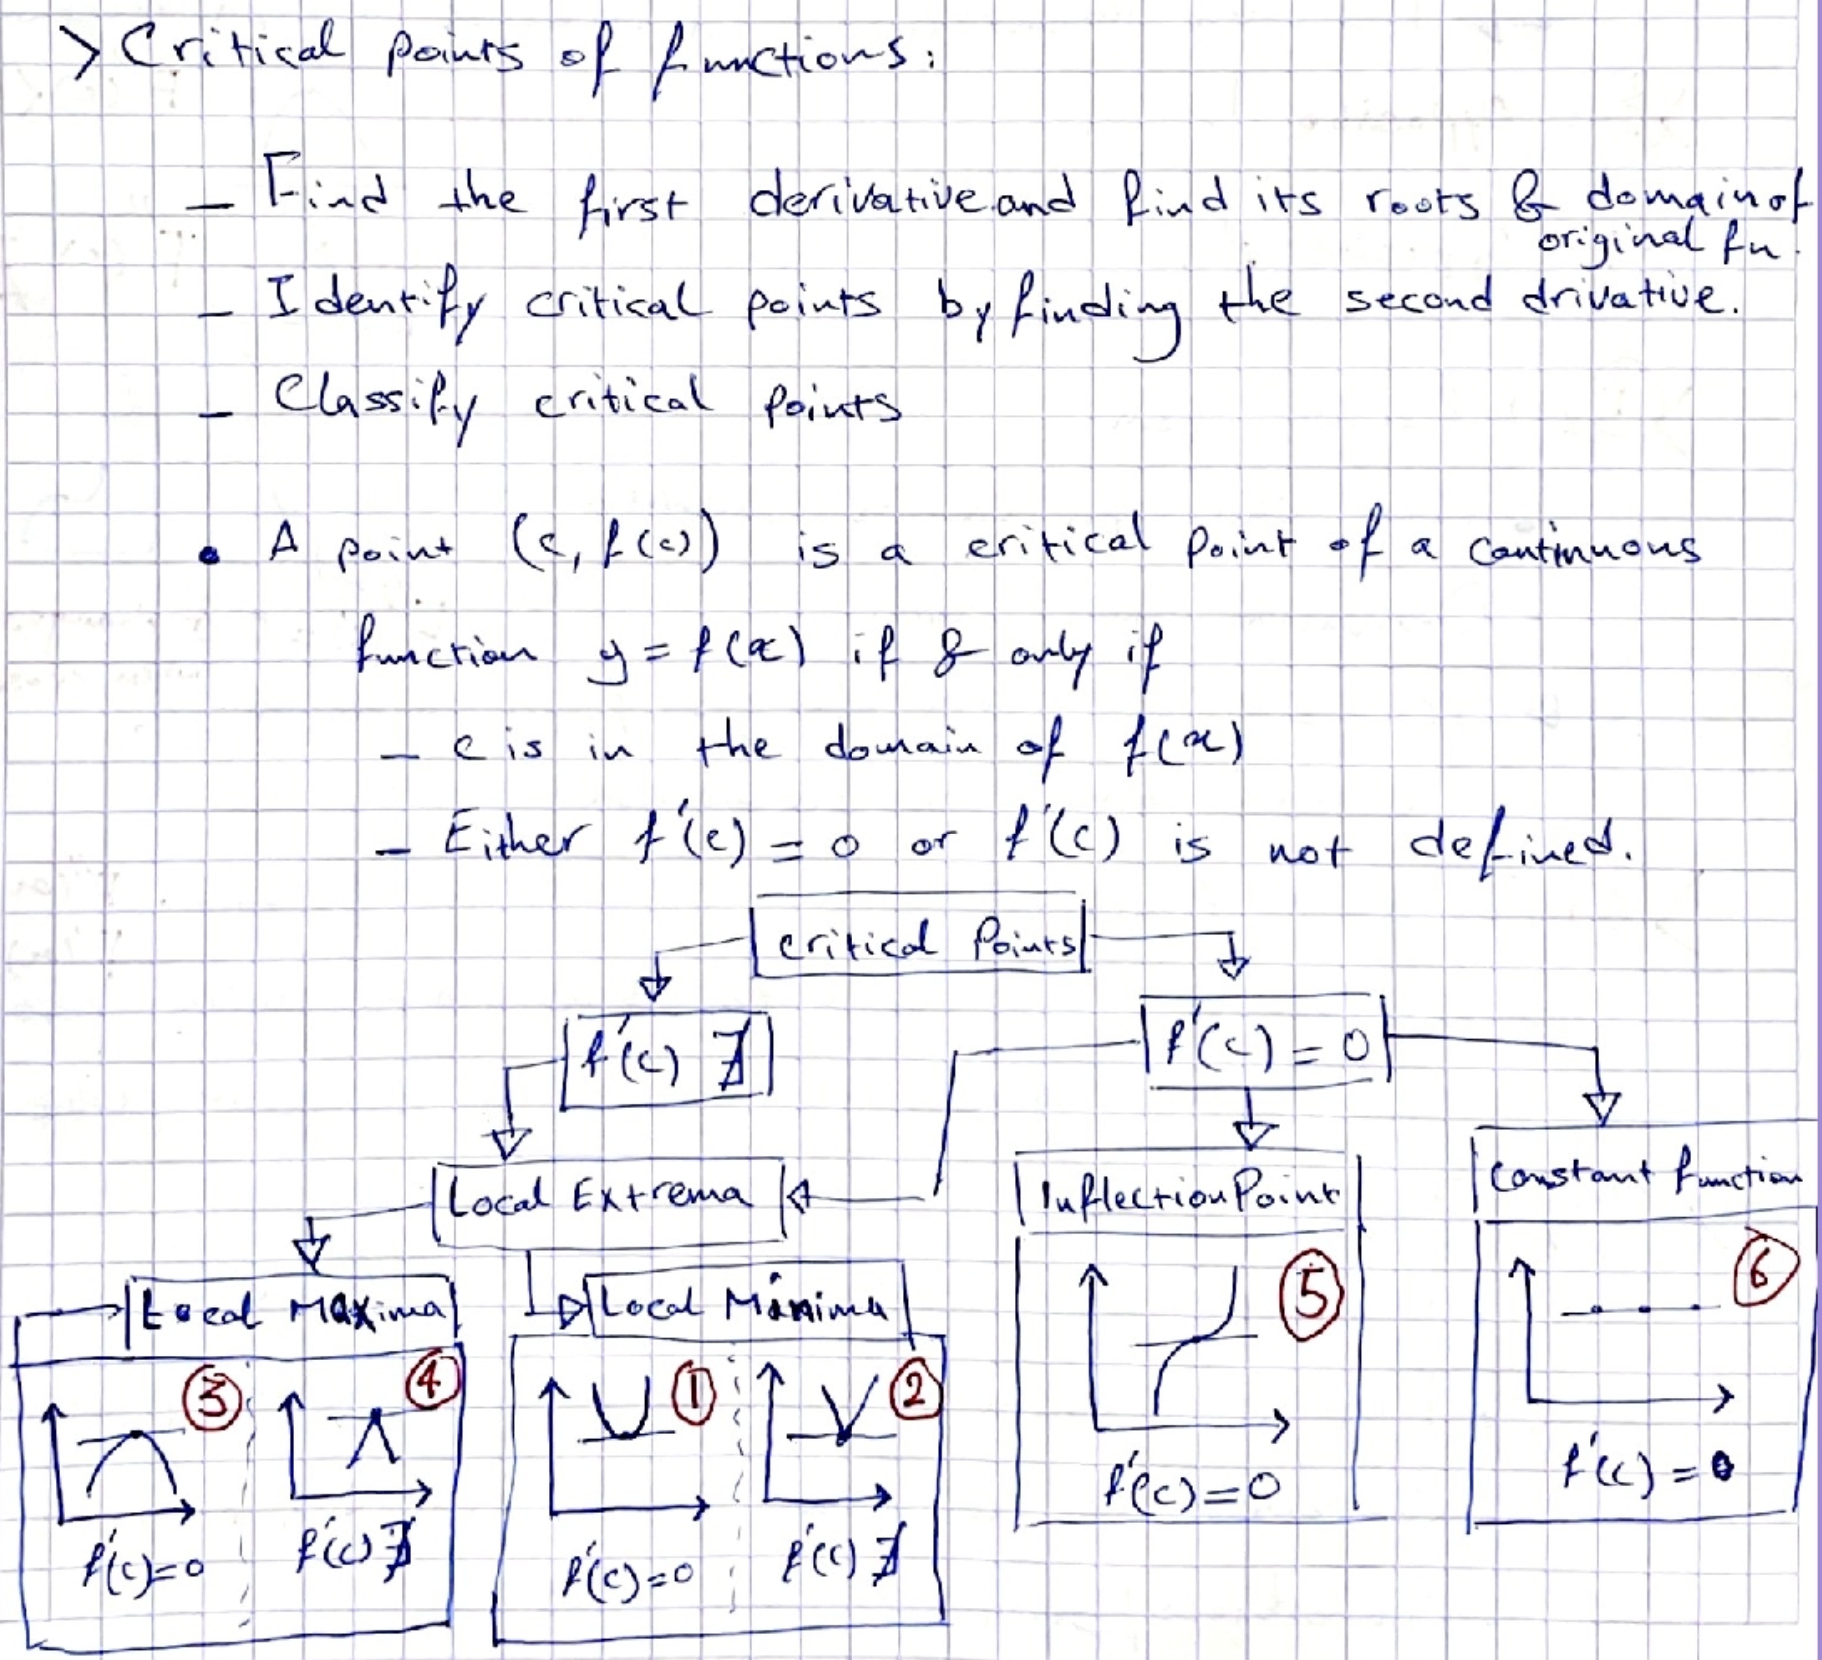 > Critical points of functions:
– Find the first derivative and find its roots & domain of
original fn.
– Identify critical points by finding the second drivative.
– Classify critical points
• A point (c, f(c)) is a critical point of a continuous
function y = f(x) if & only if
– c is in the domain of f(x)
– Either f'(c) = 0 or f'(c) is not defined.
Critical Points
f'(c) ∄
f'(c) = 0
Local Extrema
Inflection Point
Constant function
Local Maxima
Local Minima
③ ④ ① ② ⑤ ⑥
f'(c)=0
f'(c) ∄
f'(c)=0
f'(c) ∄
f'(c)=0
f'(c) = 0